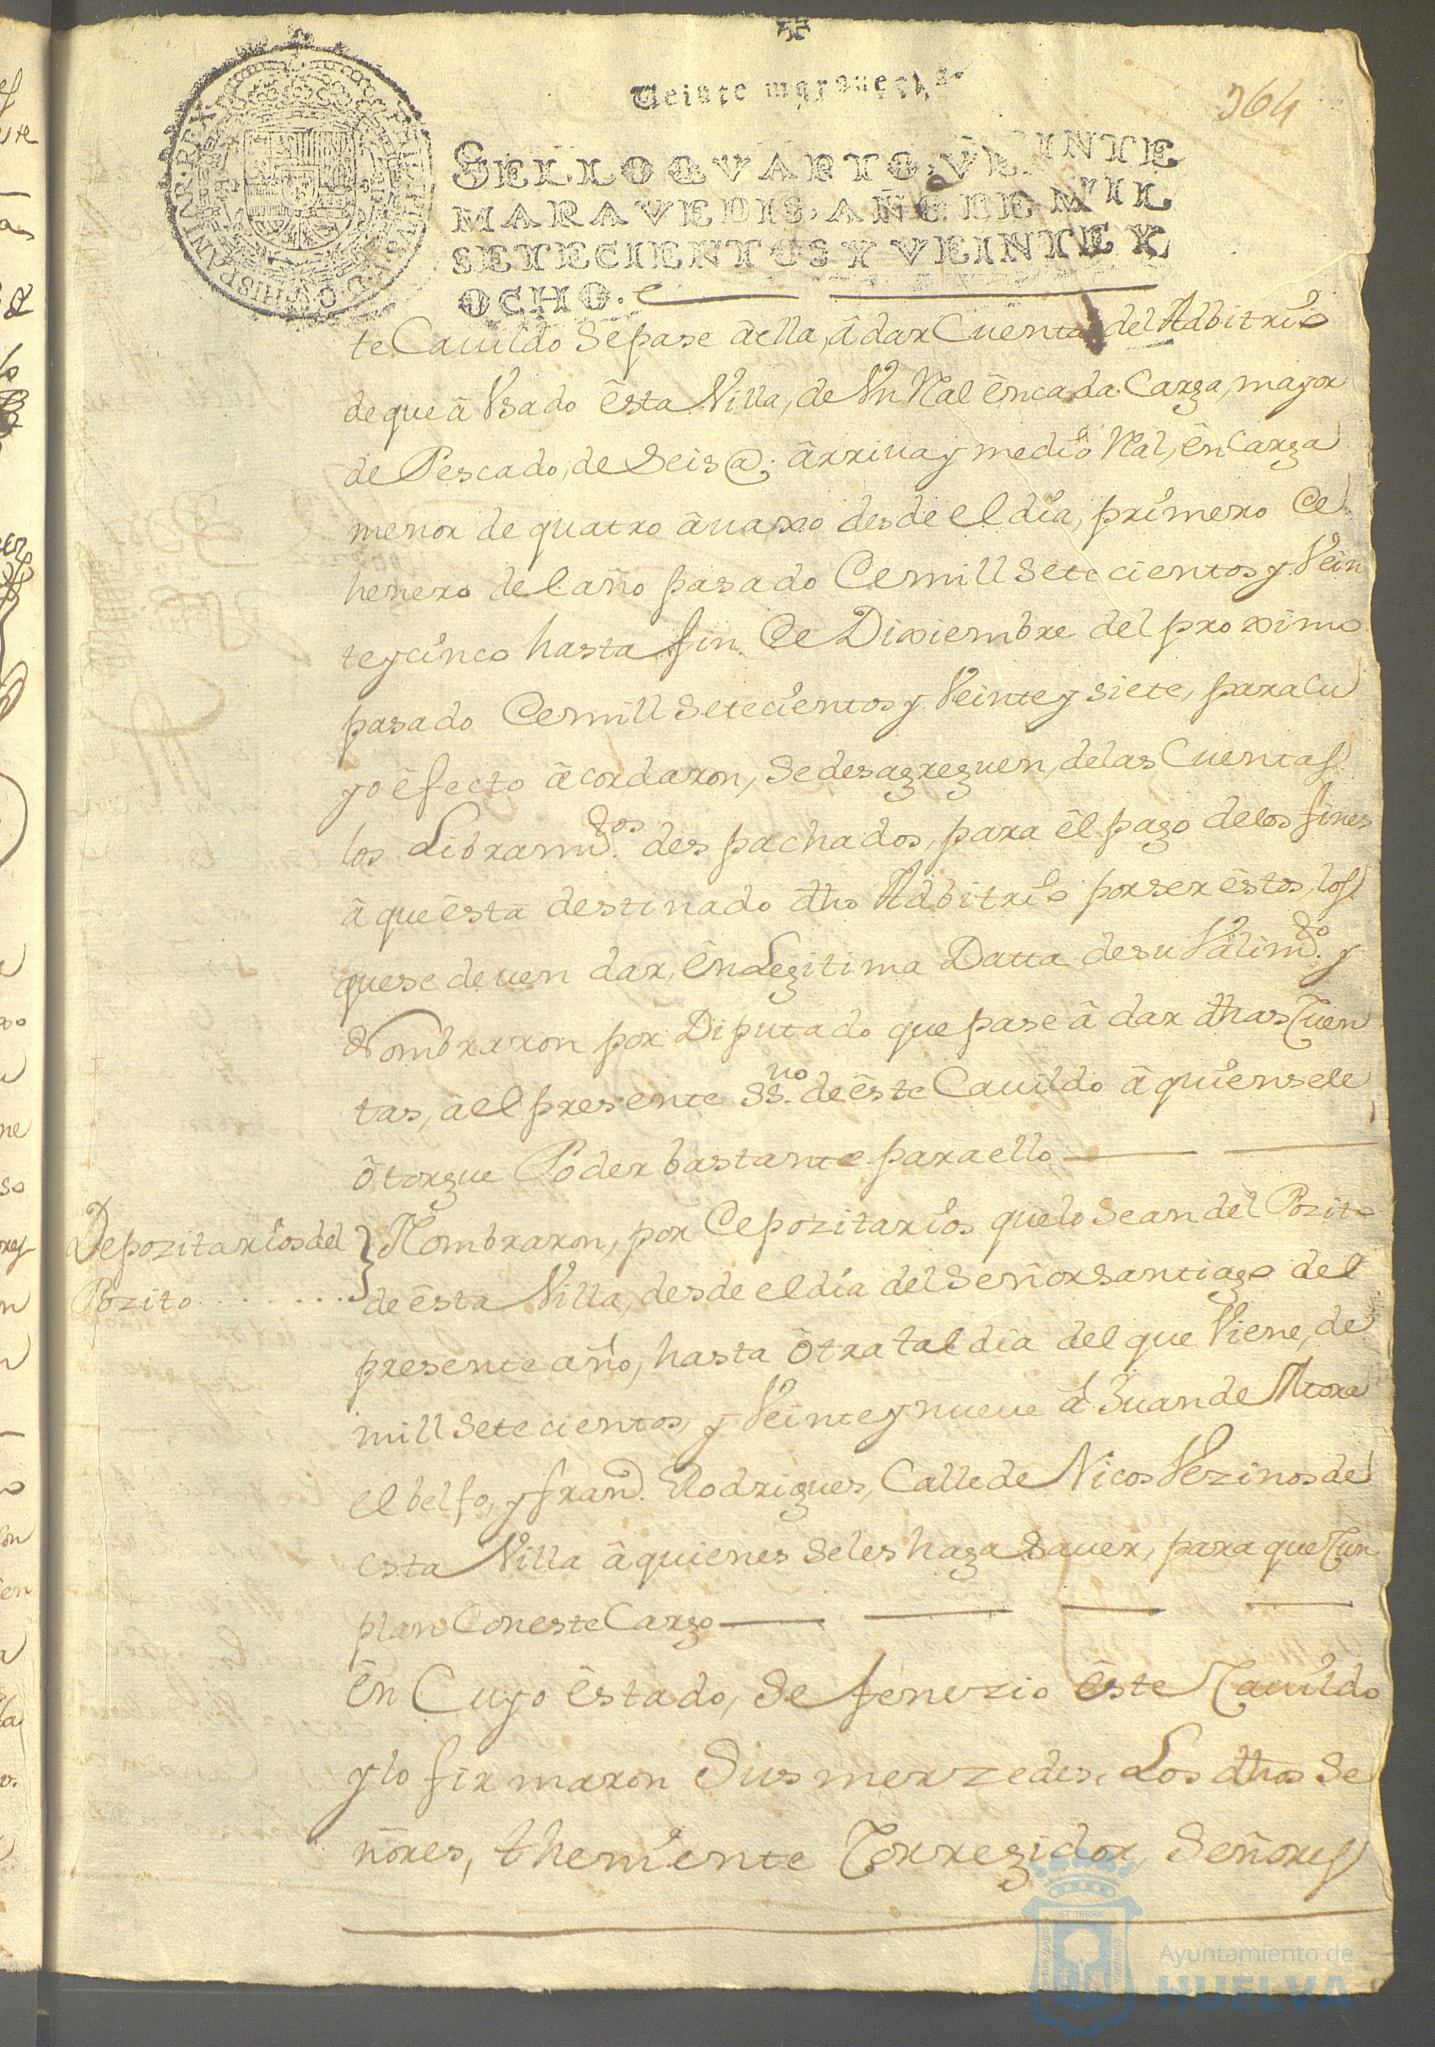 Veinte marauedis
364
SELLO QVARTO, VEINTE
MARAVEDIS, AÑO DE MIL
SETECIENTOS Y VEINTE Y
OCHO.
te Cauildo Sepase âella, â dar Cuenta del Adbitrio
de que â Vsado êsta Villa, de Vn Ral êncada Carga, mayor
de Pescado, de Seis @. ârriua y medio Ral, ên Carga
menor de quatro âuaxo desde el dia, primero de
henero del año pasado de mill Setecientos y Vein
te y cinco hasta fin de Diziembre del proximo
pasado de mill Setecientos y Veinte y siete, para cu
yo êfecto âcordaron, Se desagreguen, de las Cuentas
los Libramd.tos des pachados, para êl pago de los fines
â que êsta destinado dho Adbitrio por ser êstos, los
que se deuen dar, ên Legitima Datta de su Valimd.to y
Nombraron por Diputado que pase â dar dhas Cuen
tas, âel presente SS.no de êste Cauildo â quien se le
ôtorgue Poder bastante para ello
Depozitarios del
Pozito
Nombraron, por Depozitarios que lo sean del Pozito
de êsta Villa, desde el dia del Señor Santiago del
presente año, hasta ôtra tal dia del que Viene, de
mill setecientos, y Veinte y nueue â Juan de Mora
el belfo, y fran.d Rodrigues, Calle de Nicos Vezinos de
esta Villa â quienes Seles haga Sauer, para que Cun
plan Con este Cargo
ên Cuyo êstado, Se fenezio êste Cauildo
y lo firmaron Sus merzedes, Los dhos Se
ñores, theniente Corregidor, Señores
Ayuntamiento de
HUELVA